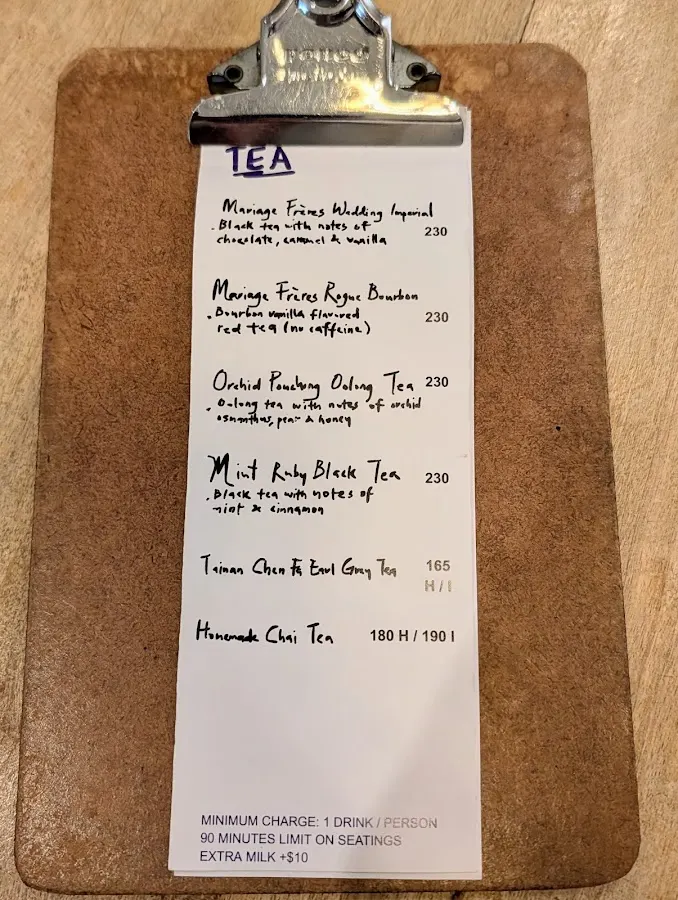 TEA
Mariage Frères Wedding Imperial
. Black tea with notes of
chocolate, caramel & vanilla
230
Mariage Frères Rogue Bourbon
. Bourbon vanilla flavored
red tea (no caffeine)
230
Orchid Pouchong Oolong Tea 230
. Oolong tea with notes of orchid
osmanthus, pear & honey
Mint Ruby Black Tea 230
. Black tea with notes of
mint & cinnamon
Tainan Chen Fa Earl Grey Tea 165
H / I
Homemade Chai Tea 180 H / 190 I
MINIMUM CHARGE: 1 DRINK / PERSON
90 MINUTES LIMIT ON SEATINGS
EXTRA MILK +$10